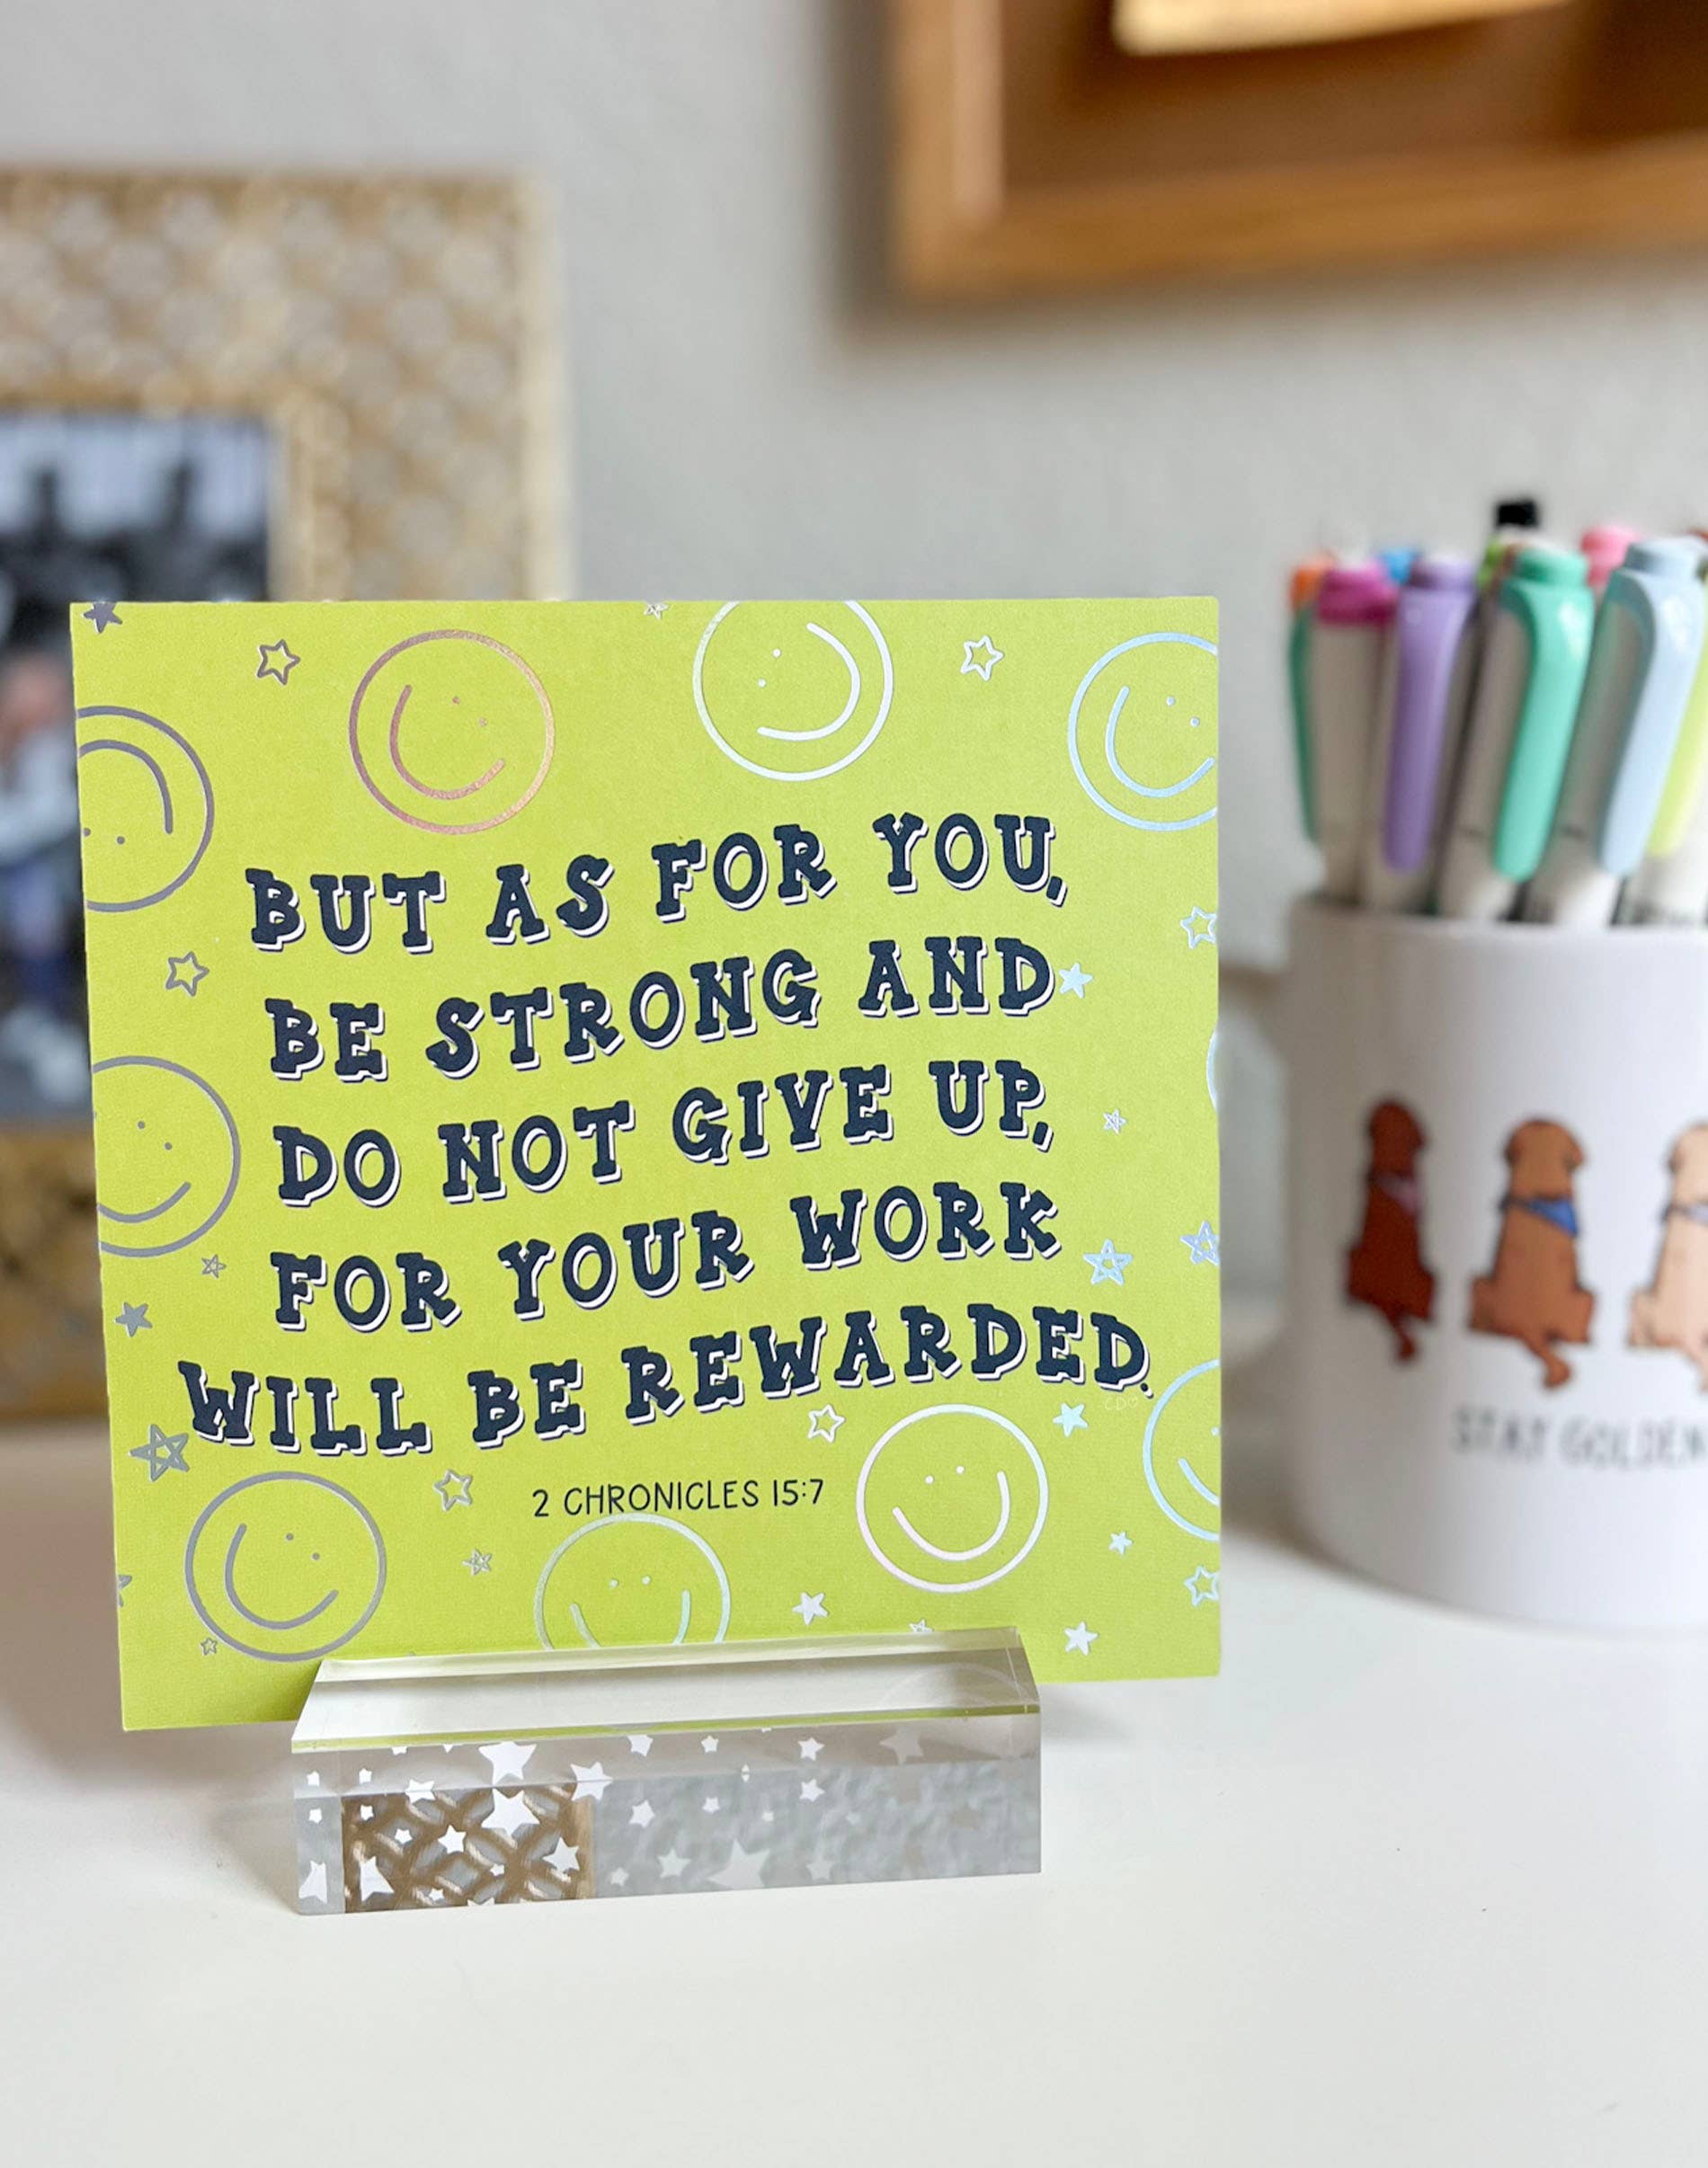 BUT AS FOR YOU,
BE STRONG AND
DO NOT GIVE UP,
FOR YOUR WORK
WILL BE REWARDED.
2 CHRONICLES 15:7
STAY GOLDEN